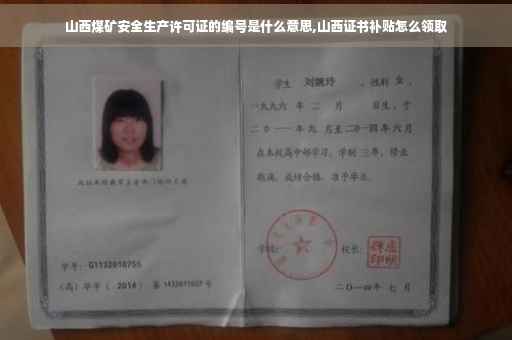 山西煤矿安全生产许可证的编号是什么意思,山西证书补贴怎么领取
学生 刘婉玲 ,性别 女 ,
一九九六 年 二 月 日生,于
二〇一一年九 月至二〇一四年六月
在本校高中部学习,学制 三年,修业
期满,成绩合格,准予毕业。
学号: G1132010755
(高)毕字( 2014 )第 1432011027 号
学校:
校长:
二〇一四年 七 月